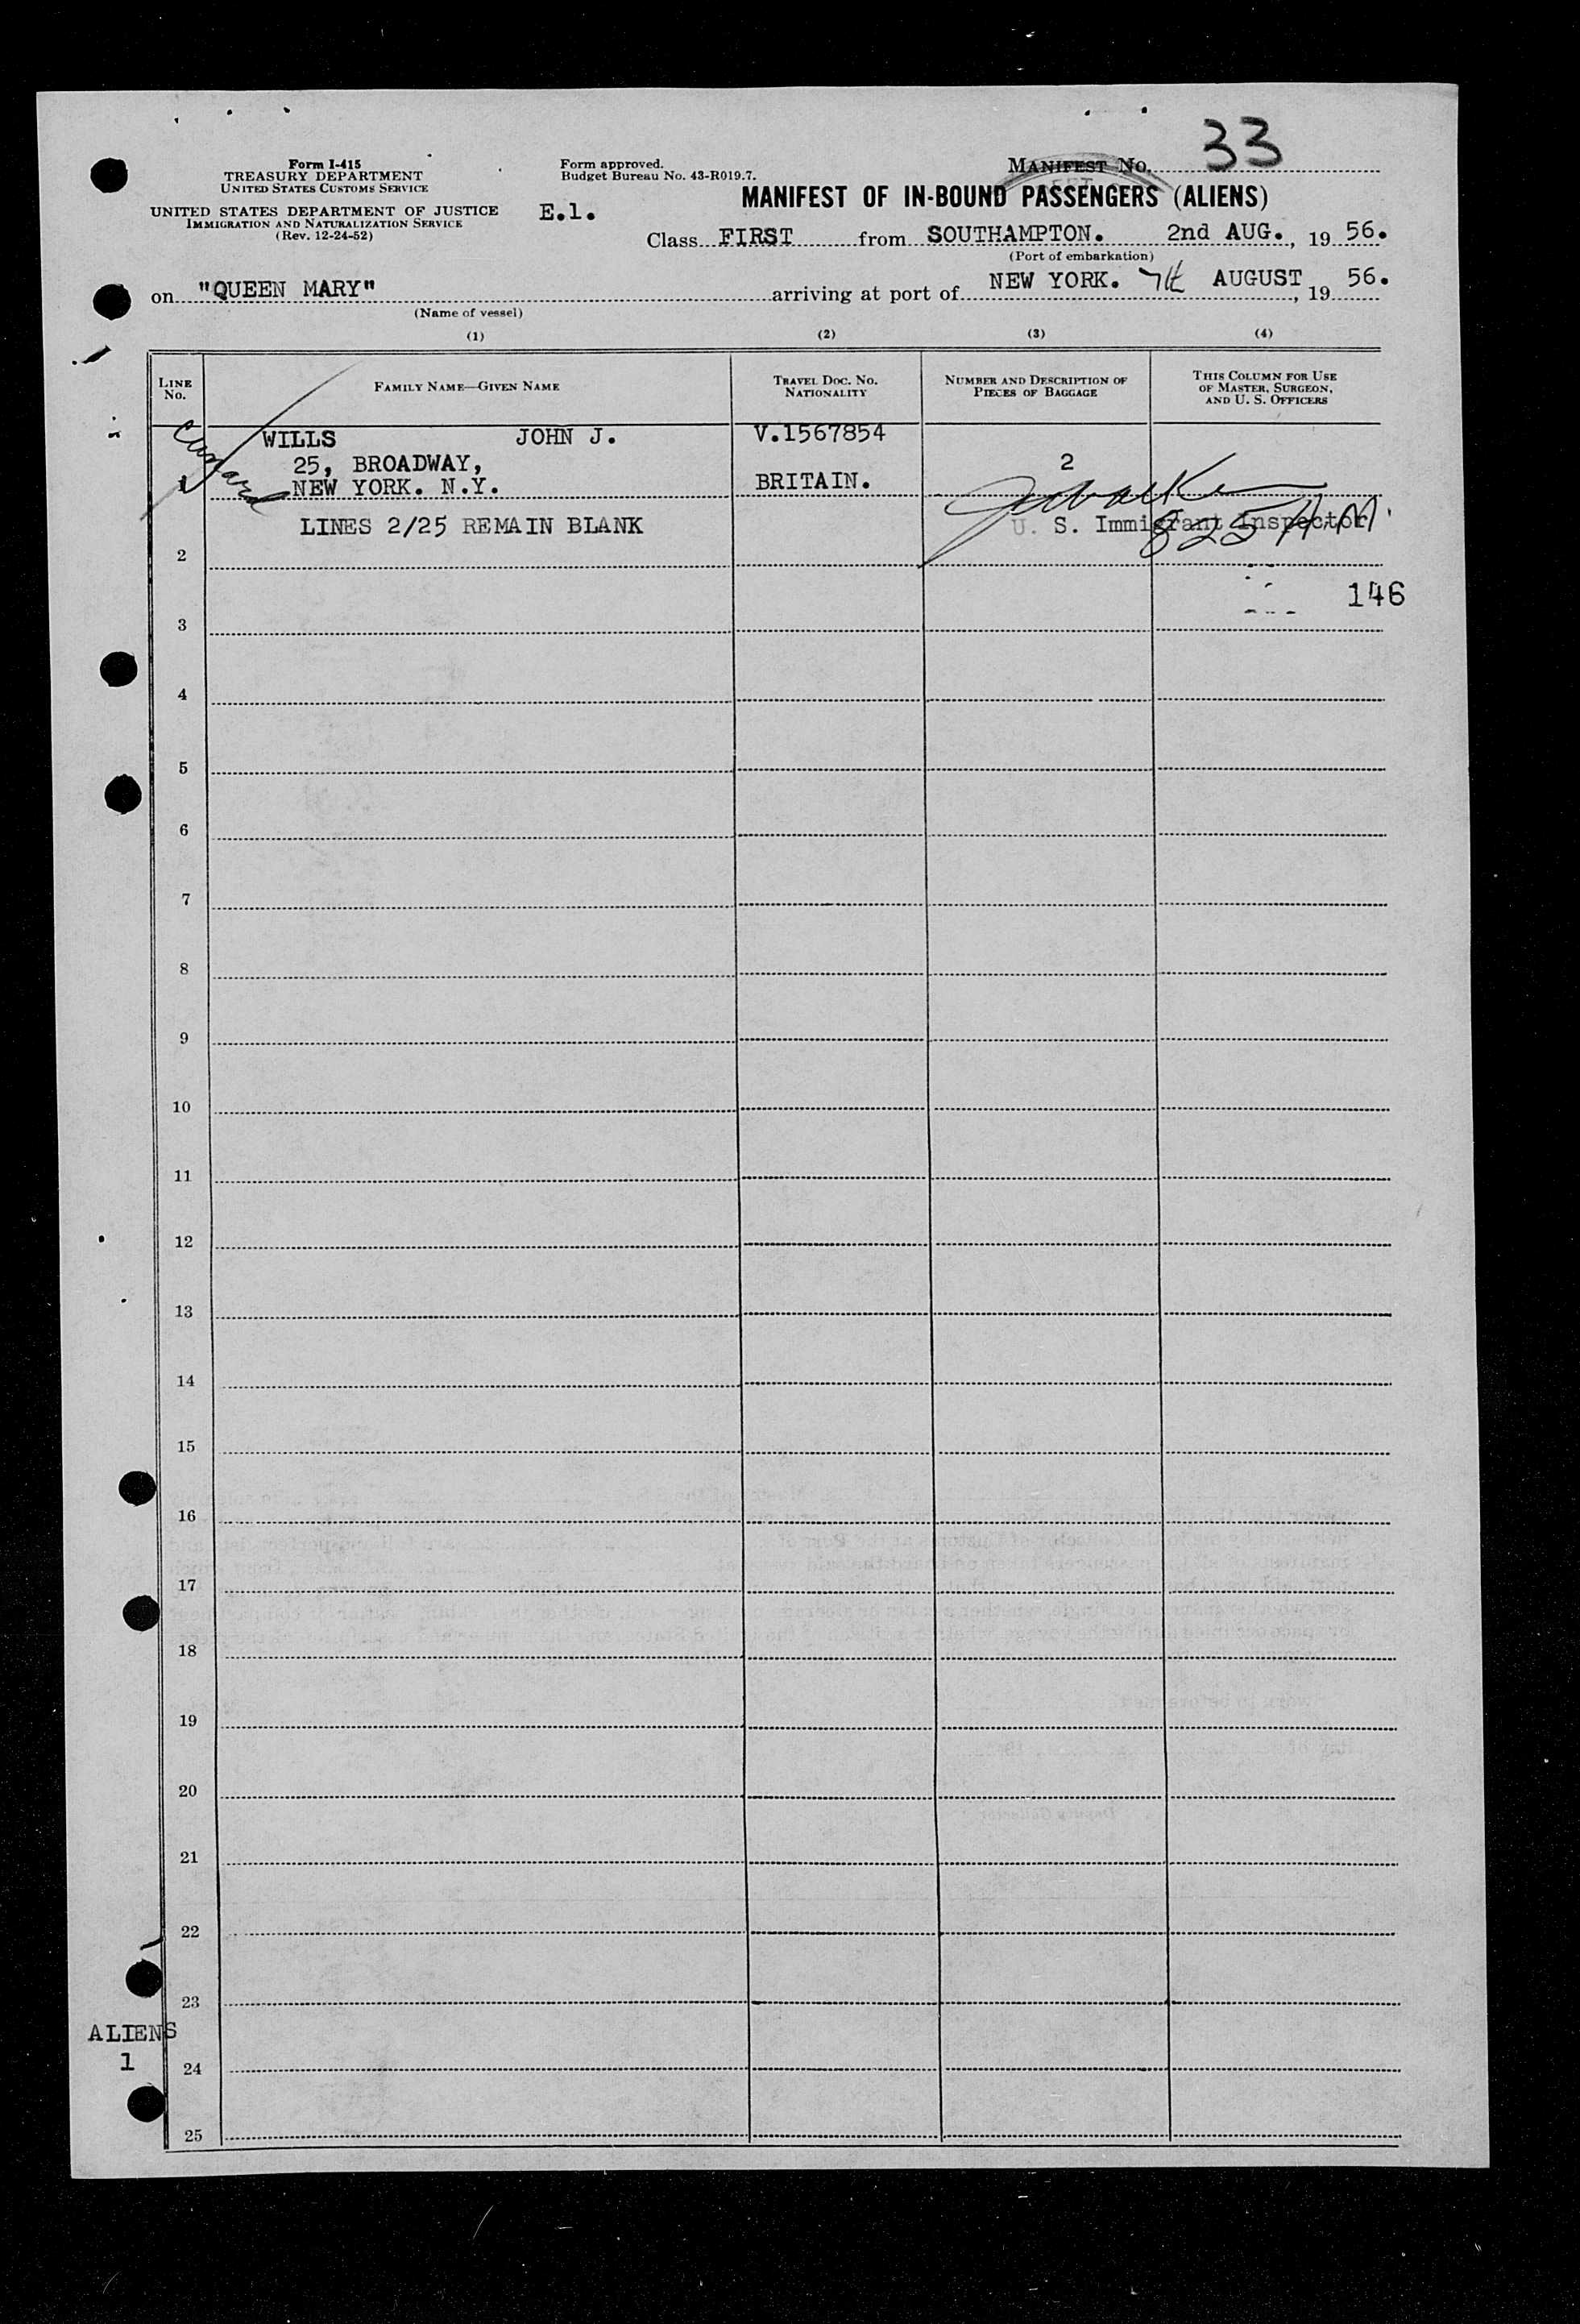 33
Form I-415
TREASURY DEPARTMENT
UNITED STATES CUSTOMS SERVICE
UNITED STATES DEPARTMENT OF JUSTICE
IMMIGRATION AND NATURALIZATION SERVICE
(Rev. 12-24-52)
Form approved.
Budget Bureau No. 43-R019.7.
E.1.
MANIFEST NO.
MANIFEST OF IN-BOUND PASSENGERS (ALIENS)
Class FIRST from SOUTHAMPTON. 2nd AUG., 19 56.
(Port of embarkation)
on "QUEEN MARY" arriving at port of NEW YORK. 7th AUGUST, 19 56.
(Name of vessel)
(1) (2) (3) (4)
LINE NO. FAMILY NAME—GIVEN NAME TRAVEL DOC. NO. NATIONALITY NUMBER AND DESCRIPTION OF PIECES OF BAGGAGE THIS COLUMN FOR USE OF MASTER, SURGEON, AND U. S. OFFICERS
Cunard
WILLS JOHN J. V.1567854
25, BROADWAY, 2
1 NEW YORK. N.Y. BRITAIN.
LINES 2/25 REMAIN BLANK U. S. Immigrant Inspector
825 A.M.
2
146
3
4
5
6
7
8
9
10
11
12
13
14
15
16
17
18
19
20
21
22
23
ALIENS
1
24
25